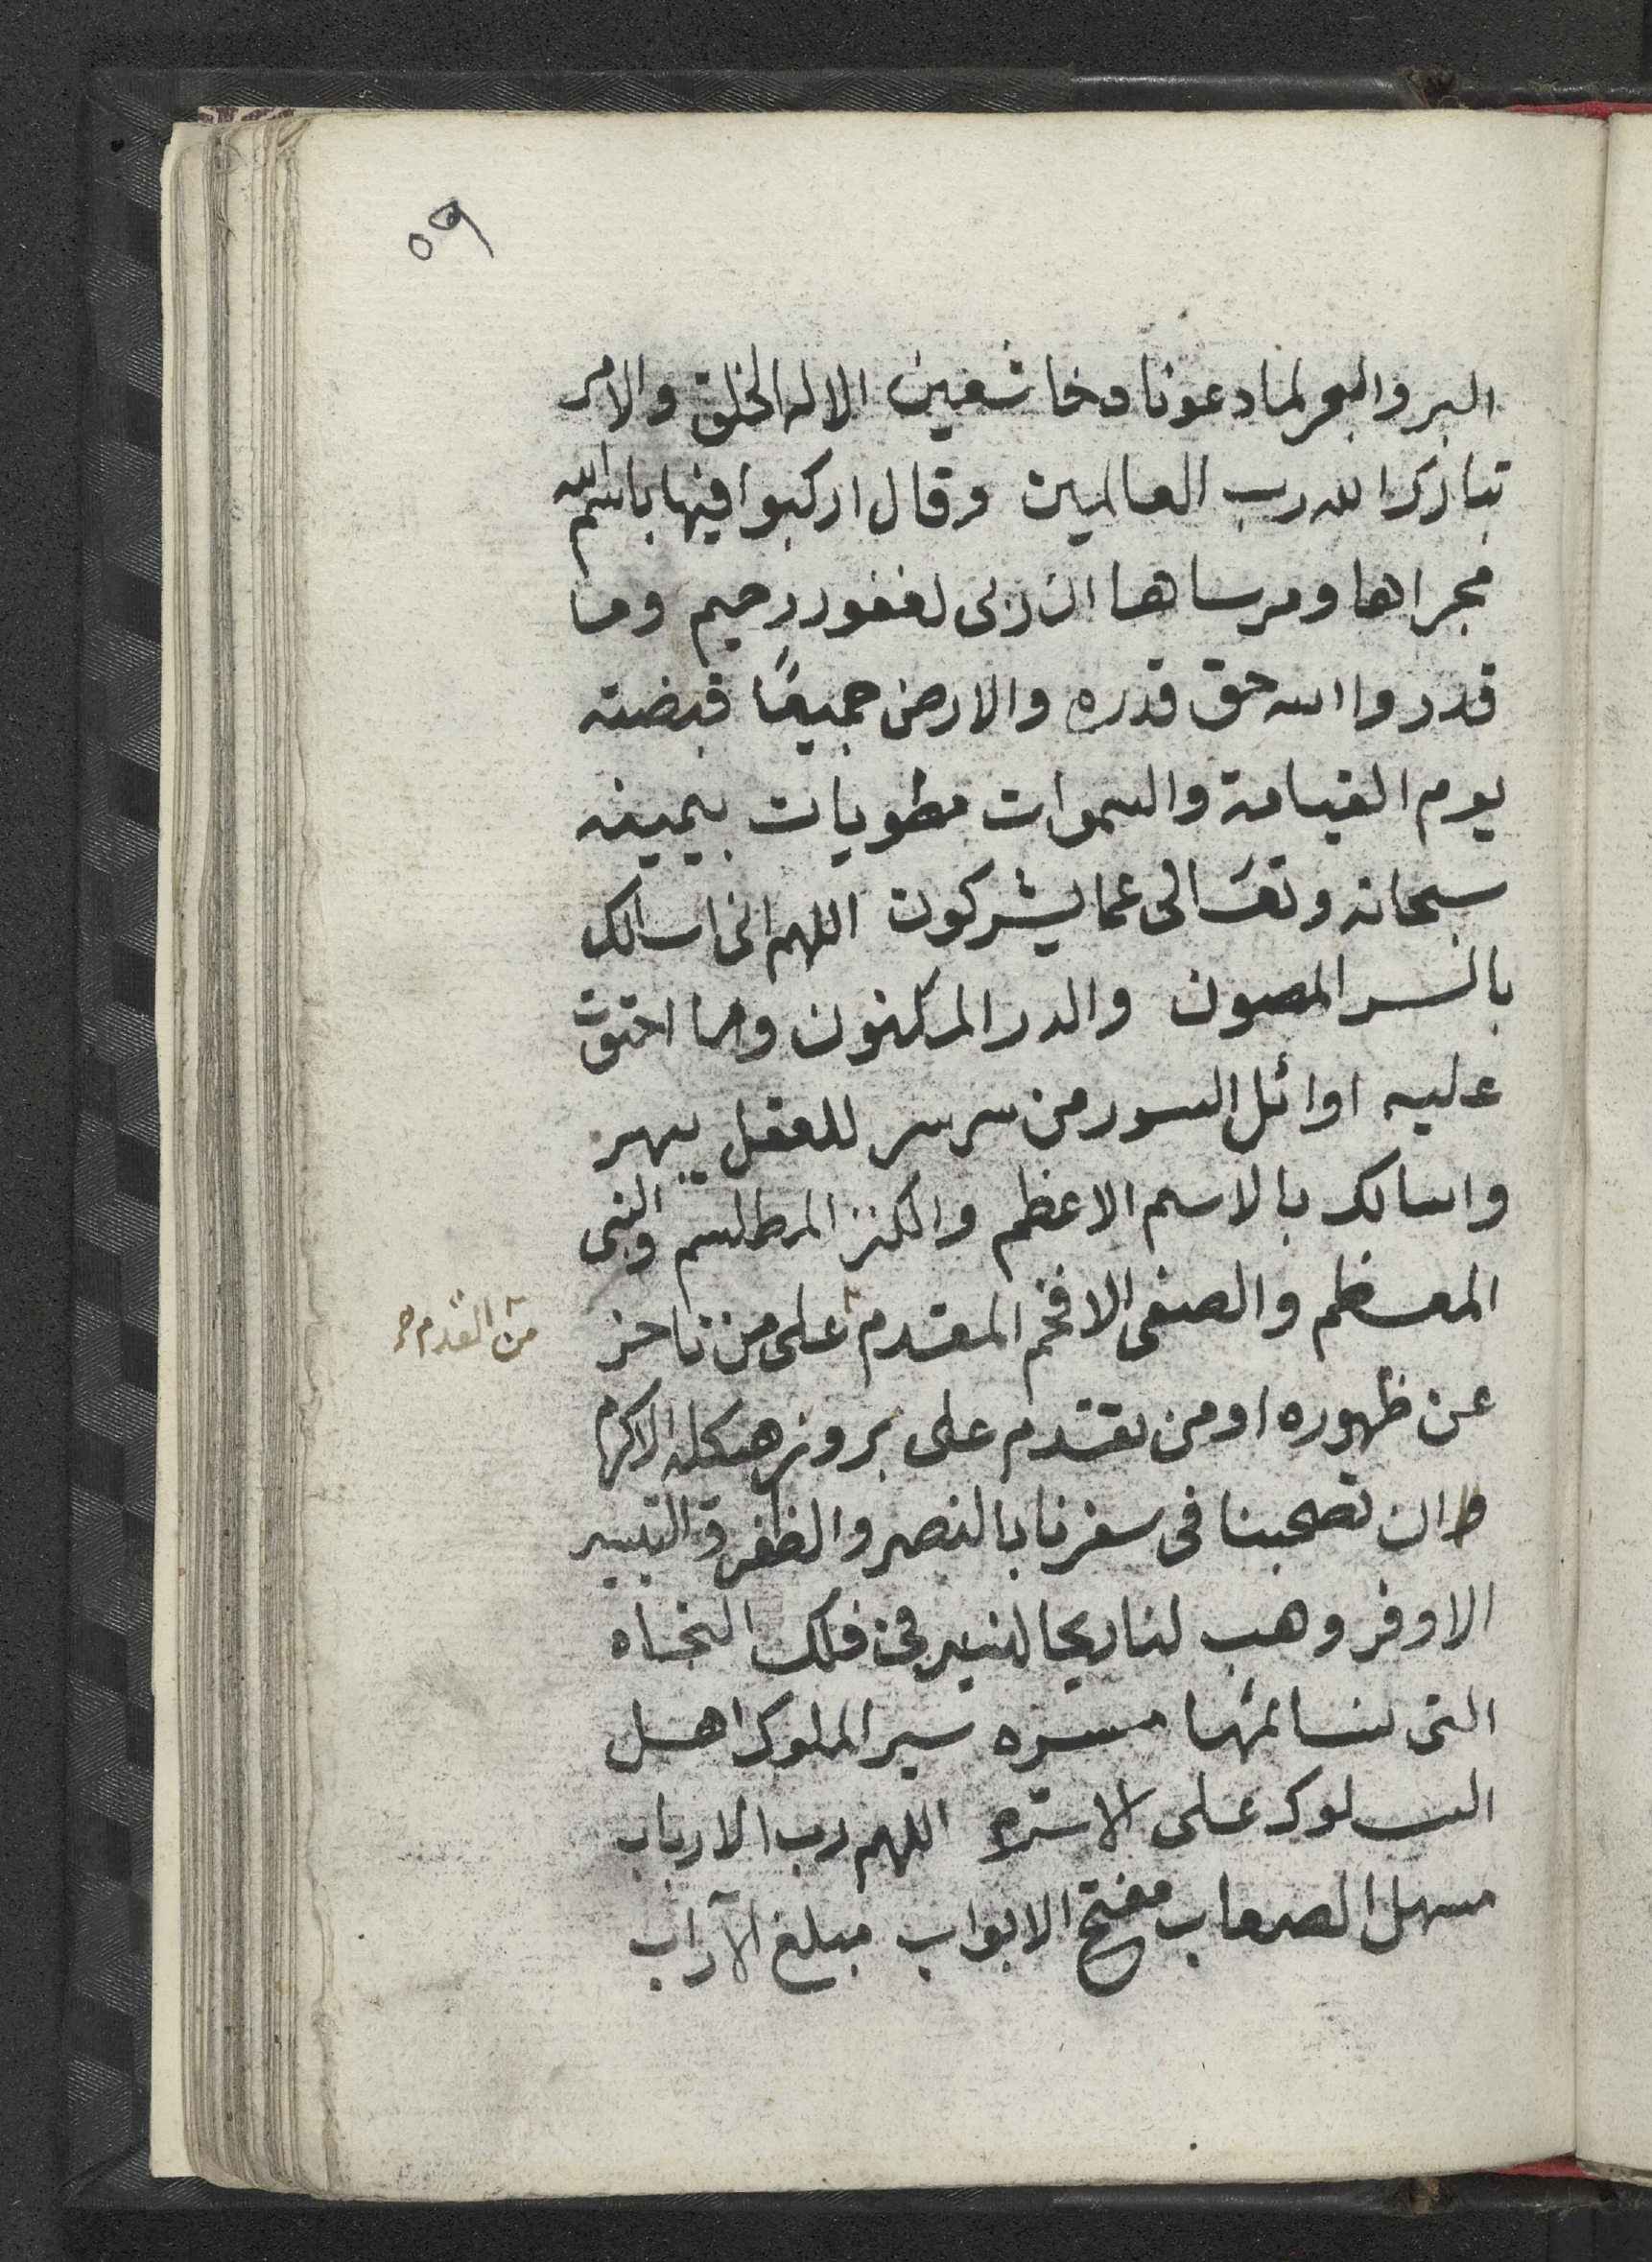 ٥٩
البر والبحر لما دعونا وخاشعين الا له الخلق والامر
تبارك الله رب العالمين وقال اركبوا فيها باسم الله
مجراها ومرساها ان ربى لغفور رحيم وما
قدروا الله حق قدره والارض جميعًا قبضته
يوم القيامة والسموات مطويات بيمينه
سبحانه وتعالى عما يشركون اللهم انى اسالك
بالسر المصون والدر المكنون وما احتوت
عليه اوائل السور من سر سر للعقل يبهر
واسالك بالاسم الاعظم والكنز المطلسم والنبى
المعظم والصفى الافخم المقدم على من تاخر
من القدم
عن ظهوره او من تقدم على بروز هيكله الاكرم
ان تصحبنا فى سفرنا بالنصر والظفر والتيسير
الاوفر وهب لنا ريحا لنسير فى فلك النجاه
التى نسائمها مسره سير الملوك اهل
السلوك على الاسره اللهم رب الارباب
مسهل الصعاب مفتح الابواب مبلغ الآراب